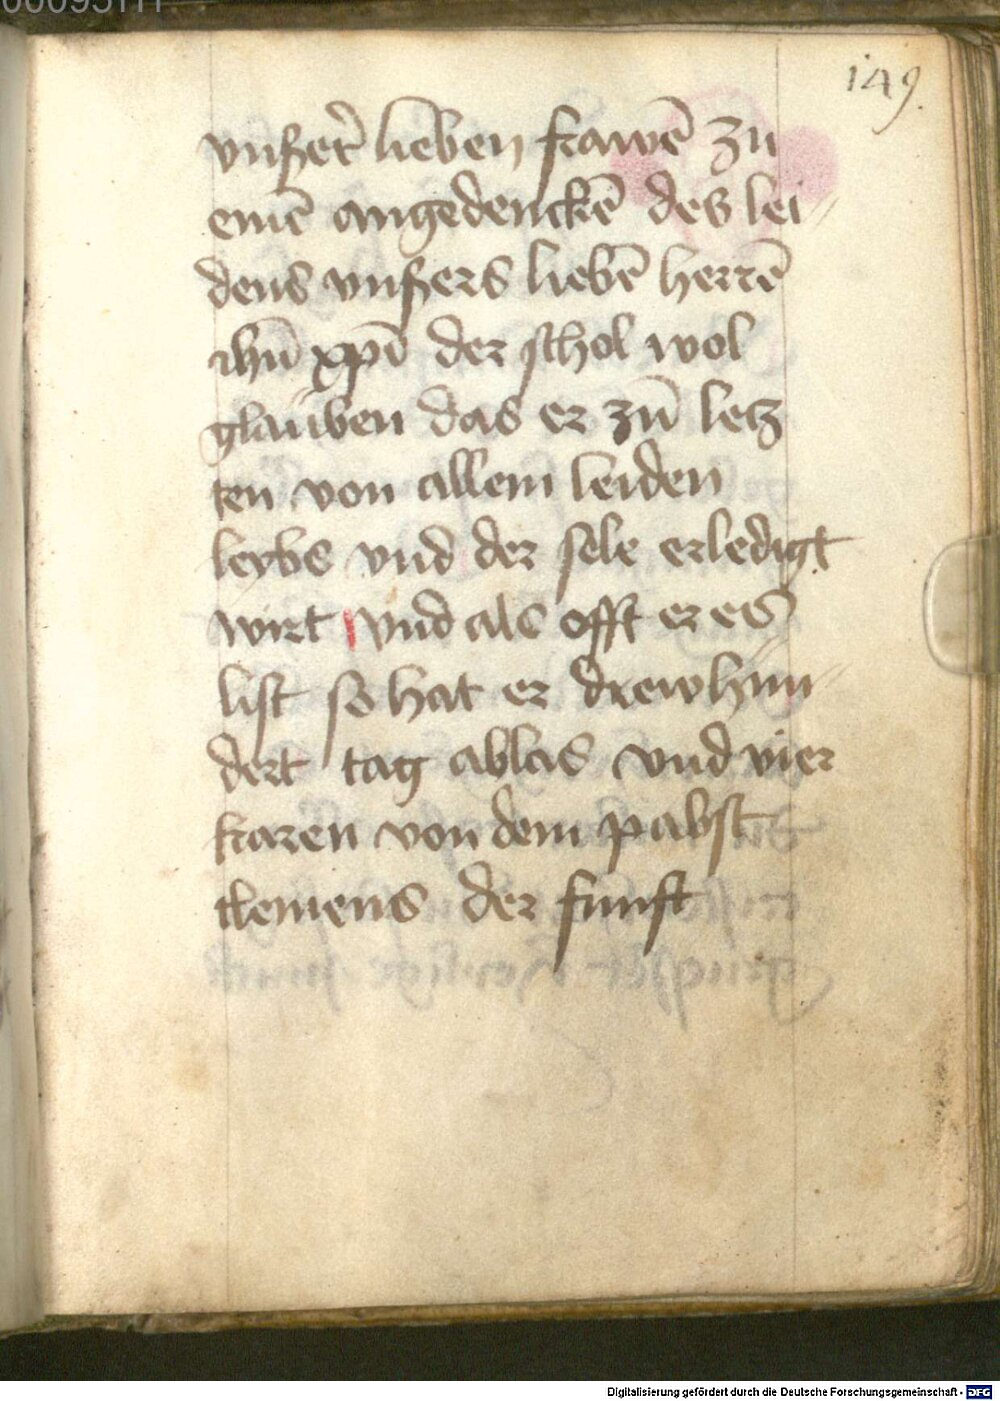 149.
vnßer̉ lieben frawē zu
einē angedenckē des lei-
dens vnßers liebē herrē
ihū xp̄i der schol wol
glauben das er zū letz
ten von allem leiden
leybs vnd der sele erledigt
wirt vnd als offt er es
list so hat er drewhun-
dert tag ablas vnd vier
karen von dem pabst
clemens der funft
Digitalisierung gefördert durch die Deutsche Forschungsgemeinschaft - DFG